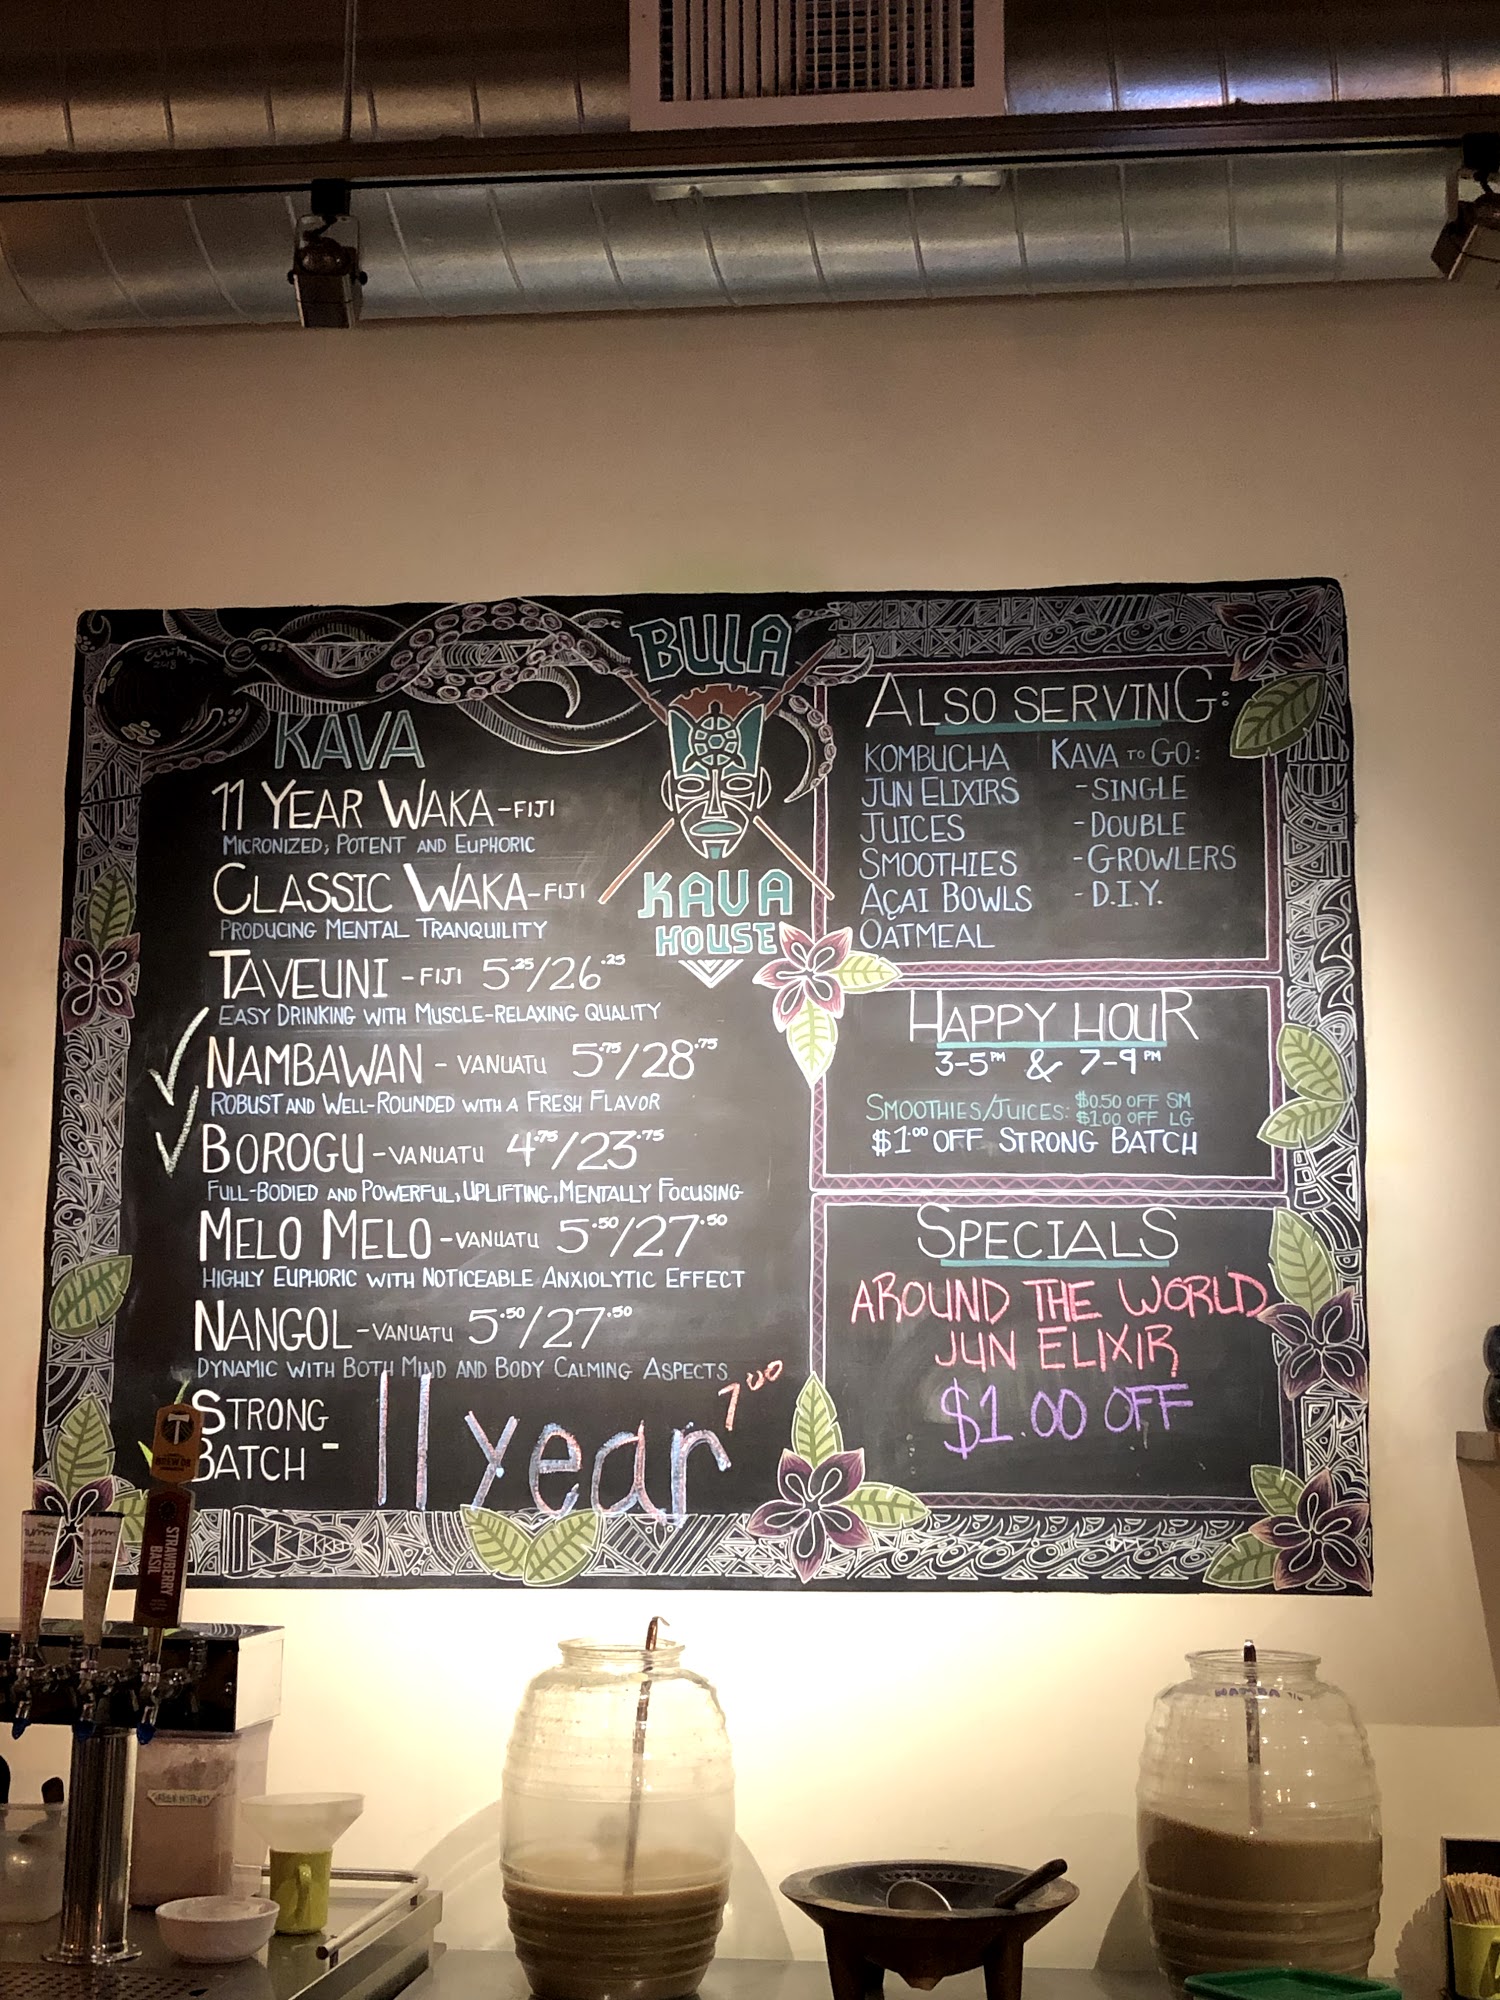 BULA
KAVA
HOUSE
KAVA
11 YEAR WAKA-FIJI
MICRONIZED, POTENT AND EUPHORIC
CLASSIC WAKA-FIJI
PRODUCING MENTAL TRANQUILITY
TAVEUNI - FIJI 5.25/26.25
EASY DRINKING WITH MUSCLE-RELAXING QUALITY
NAMBAWAN - VANUATU 5.75/28.75
ROBUST AND WELL-ROUNDED WITH A FRESH FLAVOR
BOROGU - VANUATU 4.75/23.75
FULL-BODIED AND POWERFUL, UPLIFTING, MENTALLY FOCUSING
MELO MELO - VANUATU 5.50/27.50
HIGHLY EUPHORIC WITH NOTICEABLE ANXIOLYTIC EFFECT
NANGOL - VANUATU 5.50/27.50
DYNAMIC WITH BOTH MIND AND BODY CALMING ASPECTS
STRONG
BATCH - 11 year 7.00
ALSO SERVING:
KOMBUCHA
JUN ELIXIRS
JUICES
SMOOTHIES
AÇAI BOWLS
OATMEAL
KAVA TO GO:
- SINGLE
- DOUBLE
- GROWLERS
- D.I.Y.
HAPPY HOUR
3-5PM & 7-9PM
SMOOTHIES/JUICES: $0.50 OFF SM
$1.00 OFF LG
$1.00 OFF STRONG BATCH
SPECIALS
AROUND THE WORLD
JUN ELIXIR
$1.00 OFF
STRAWBERRY
BASIL